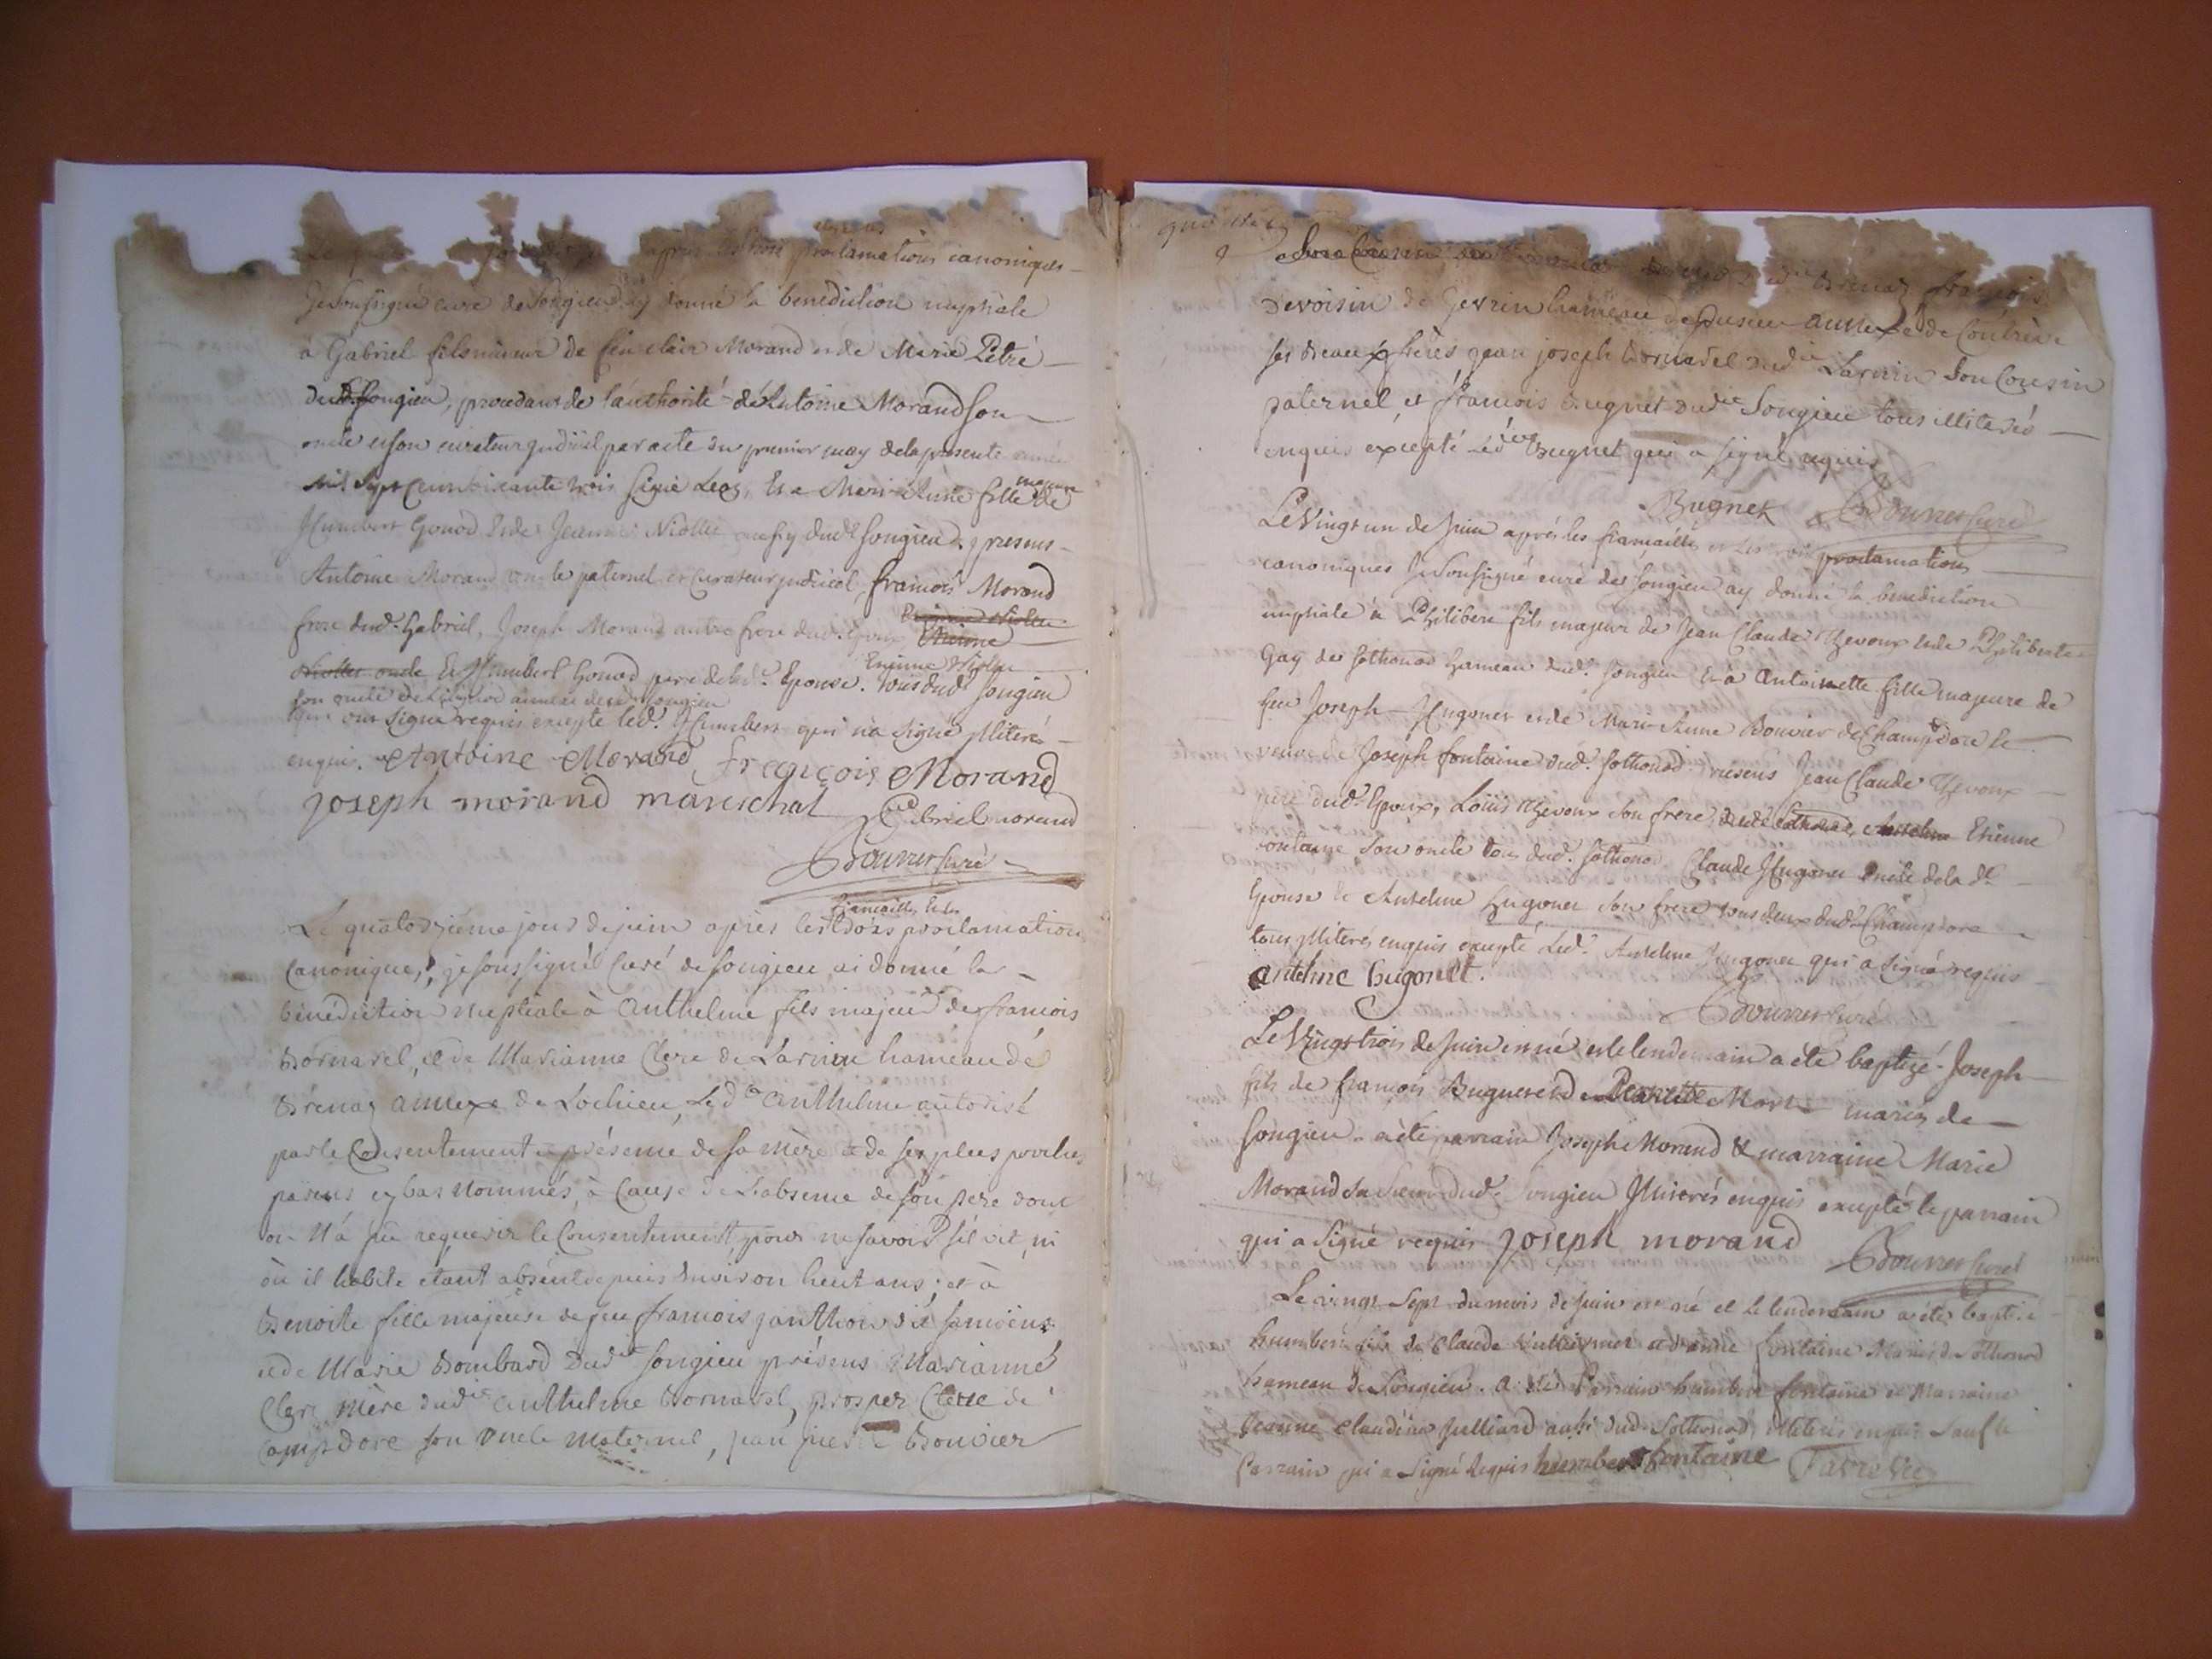 après les trois proclamations canoniques
Je soussigné curé de Songieu ay donné la benediction nuptiale
à Gabriel fils mineur de feu clair Morand et de Marie Pétré
dud. Songieu, procedant de l'authorité d'Antoine Morand son
oncle et son curateur judiciel par acte du premier may de la presente année
mil sept cent soixante trois signé Et a Marie Anne fille majeure de
Humbert Gonod et de Niollet aussy dud. Songieu presens
Antoine Morand oncle paternel et curateur judiciel, francois Morand
frere dud. Gabriel, Joseph Morand autre frere dud. Epoux
Etienne
Niollet oncle Et Humbert Gonod pere de lad. Epouse. Etienne Niollet tous dud. Songieu
son oncle annexe de Songieu
tous ont signé requis excepté led. Humbert qui n'a signé illiteré
enquis. Antoine Morand françois Morand
joseph morand marechal Gabriel morand
Bouvier curé
fiancailles et les
Le quatorzième jour de juin après les trois proclamations
Canoniques, je soussigné Curé de songieu ai donné la
bénédiction nuptiale à Anthelme fils majeur de francois
Bornarel, et de Marianne Clerc de Larnin hameau de
Brénaz annexe de Lochieu, Led. Anthelme autorisé
par le Consentement et présence de sa mère et de ses plus proches
parens cy bas nommés, à Cause de L'absence de son pere dont
on N'a pu requerir le Consentement, pour ne savoir s'il vit, ni
où il habite étant absent depuis environ huit ans; et à
Benoite fille majeure de feu francois janthon dit
et de Marie Bombard dud. songieu présens Marianne
Clerc mère dud. Anthelme Bornarel, prosper Clerc de
Champdore son oncle maternel, jean pierre Bouvier
Brenaz françois
Devoisin de Gevrin hameau de annexe de Coutrève
ses beaux frères jean joseph Bornarel dud. Larnin son Cousin
paternel et francois Bugnet dud. Songieu tous illiterés
enquis excepté Led. Bugnet qui a signé requis
Bugnet Bouvier Curé
Le vingt un de Juin après les fiancailles et les trois proclamations
canoniques Je soussigné curé de Songieu ay donné la benediction
nuptiale à Philibert fils majeur de Jean Claude Thevoux et de Philiberte
Gay de Sothonod hameau dud. Songieu et à Antoinette fille majeure de
feu Joseph Hugonet et de Marie Anne Bouvier de Champdore et
veuve de Joseph fontaine dud. Sothonod. presens Jean Claude Thevoux
pere dud. Epoux, Loüis Thevoux son frere, Etienne
fontaine son oncle tous dud. Sothonod. Claude Hugonet oncle de la de.
Epouse et Antelme Hugonet son frere tous deux dud. Champdore
tous illiterés enquis excepté Led. Antelme Hugonet qui a signé requis
antelme hugonet.
Bouvier curé
Le vingt trois de Juin est né et le lendemain a été baptizé Joseph
fils de francois Buguet et de Pernette Morand mariés de
Songieu. a été parrain Joseph Morand & marraine Marie
Morand sa soeur dud. Songieu illiterés enquis excepté le parrain
qui a signé requis joseph morand
Bouvier Curé
Le vingt Sept du mois de Juin est né et le lendemain a été baptisé
humbert fils de Claude et d'anne fontaine Mariés de Sothonod
hameau de Songieu. a été Parrain humbert fontaine et Marraine
Jeanne Claudine Julliard aussi dud. Sothonod, illiterés enquis Sauf le
Parrain qui a Signé Requis humbert fontaine Favre vic.